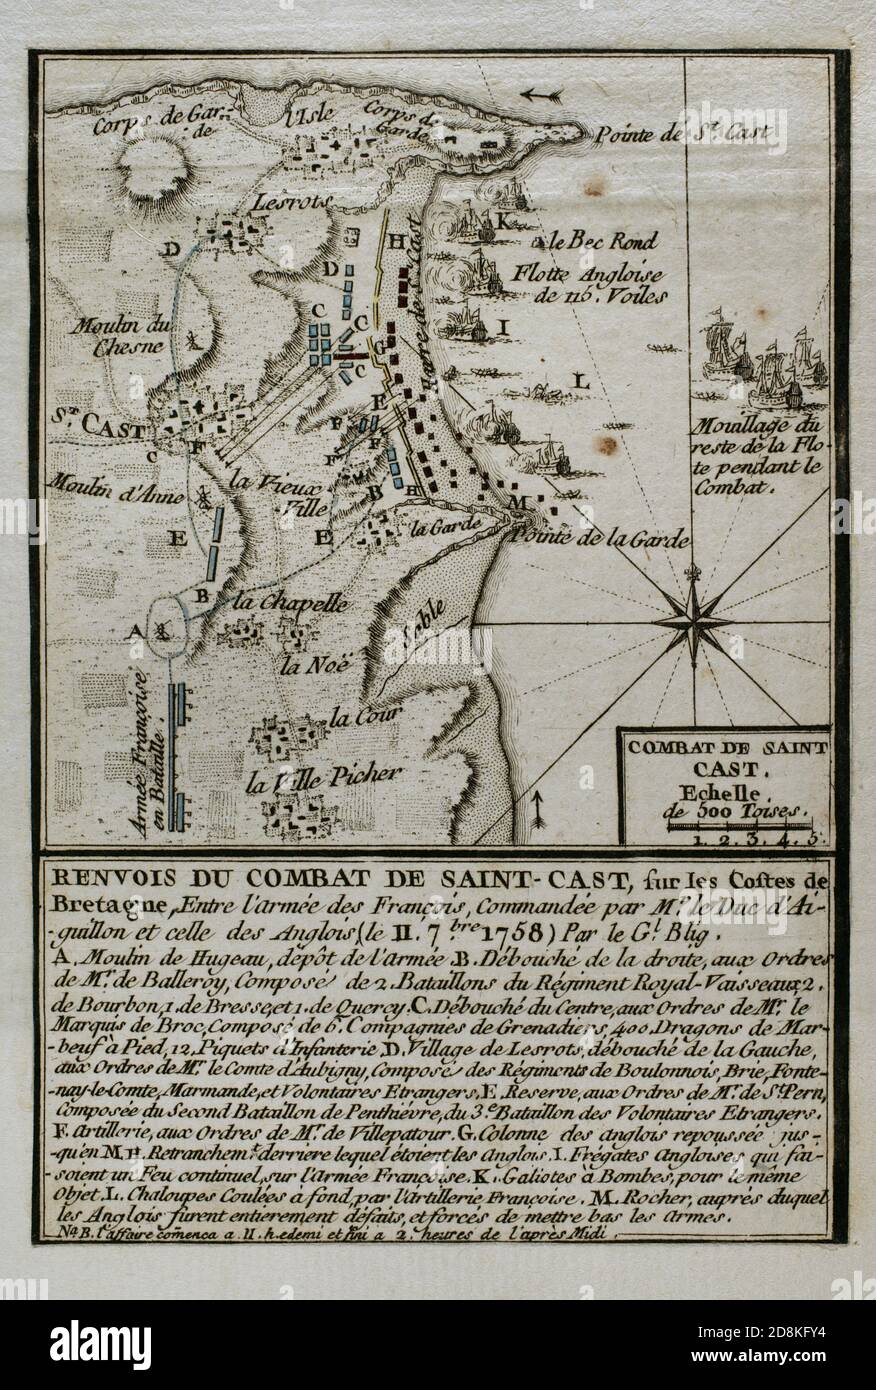 Corps de Gar=
de
l'Isle
Corps de
Garde
Pointe de St. Cast
Lesrots
D
K
H
Havre de St. Cast
le Bec Rond
D
Flotte Angloise
de 116. Voiles
Moulin du
Chesne
C
C
G
I
C
L
St. CAST
C
F
E
F
F
F
Mouillage du
reste de la Flo-
te pendant le
Combat.
Moulin d'Anne
la Vieux
Ville
B
H
M
E
E
la Garde
Pointe de la Garde
B
la Chapelle
A
Sable
la Noë
Armée Françoise
en Bataille.
la Cour
la Ville Picher
COMBAT DE SAINT
CAST.
Echelle
de 500 Toises.
1. 2. 3. 4. 5.
RENVOIS DU COMBAT DE SAINT-CAST, sur les Costes de
Bretagne, Entre l'armée des François, Commandée par Mr. le Duc d'Ai-
-guillon et celle des Anglois (le 11. 7bre 1758) Par le Gl. Blig.
A. Moulin de Hugeau, dépôt de l'armée. B. Débouché de la droite, aux Ordres
de Mr. de Balleroy, Composé de 2. Bataillons du Régiment Royal-Vaisseaux 2.
de Bourbon, 1. de Bresse, et 1. de Quercy. C. Débouché du Centre, aux Ordres de Mr. le
Marquis de Broc, Composé de 6. Compagnies de Grenadiers, 400. Dragons de Mar-
-beuf à Pied, 12. Piquets d'Infanterie D. Village de Lesrots, débouché de la Gauche,
aux Ordres de Mr. le Comte d'Aubigny, Composé des Régiments de Boulonnois, Brie, Fonte-
-nay-le-Comte, Marmande, et Volontaires Etrangers, E. Reserve, aux Ordres de Mr. de St. Pern,
Composée du Second Bataillon de Penthiévre, du 3.e Bataillon des Volontaires Etrangers.
F. Artillerie, aux Ordres de Mr. de Villepatour. G. Colonne des anglois repoussée jus-
-qu'en M. H. Retranchemt. derriere lequel étoient les Anglois. I. Frégates Angloises qui fai-
-soient un Feu continuel, sur l'Armée Françoise. K. Galiotes à Bombes, pour le même
Objet. L. Chaloupes Coulées à fond, par l'Artillerie Françoise. M. Rocher, auprès duquel
les Anglois furent entierement défaits, et forcés de mettre bas les Armes.
Na. B. l'affaire comença a 11. h. edemi et fini a 2. heures de l'après Midi.
alamy
Image ID: 2D8KFY4
www.alamy.com